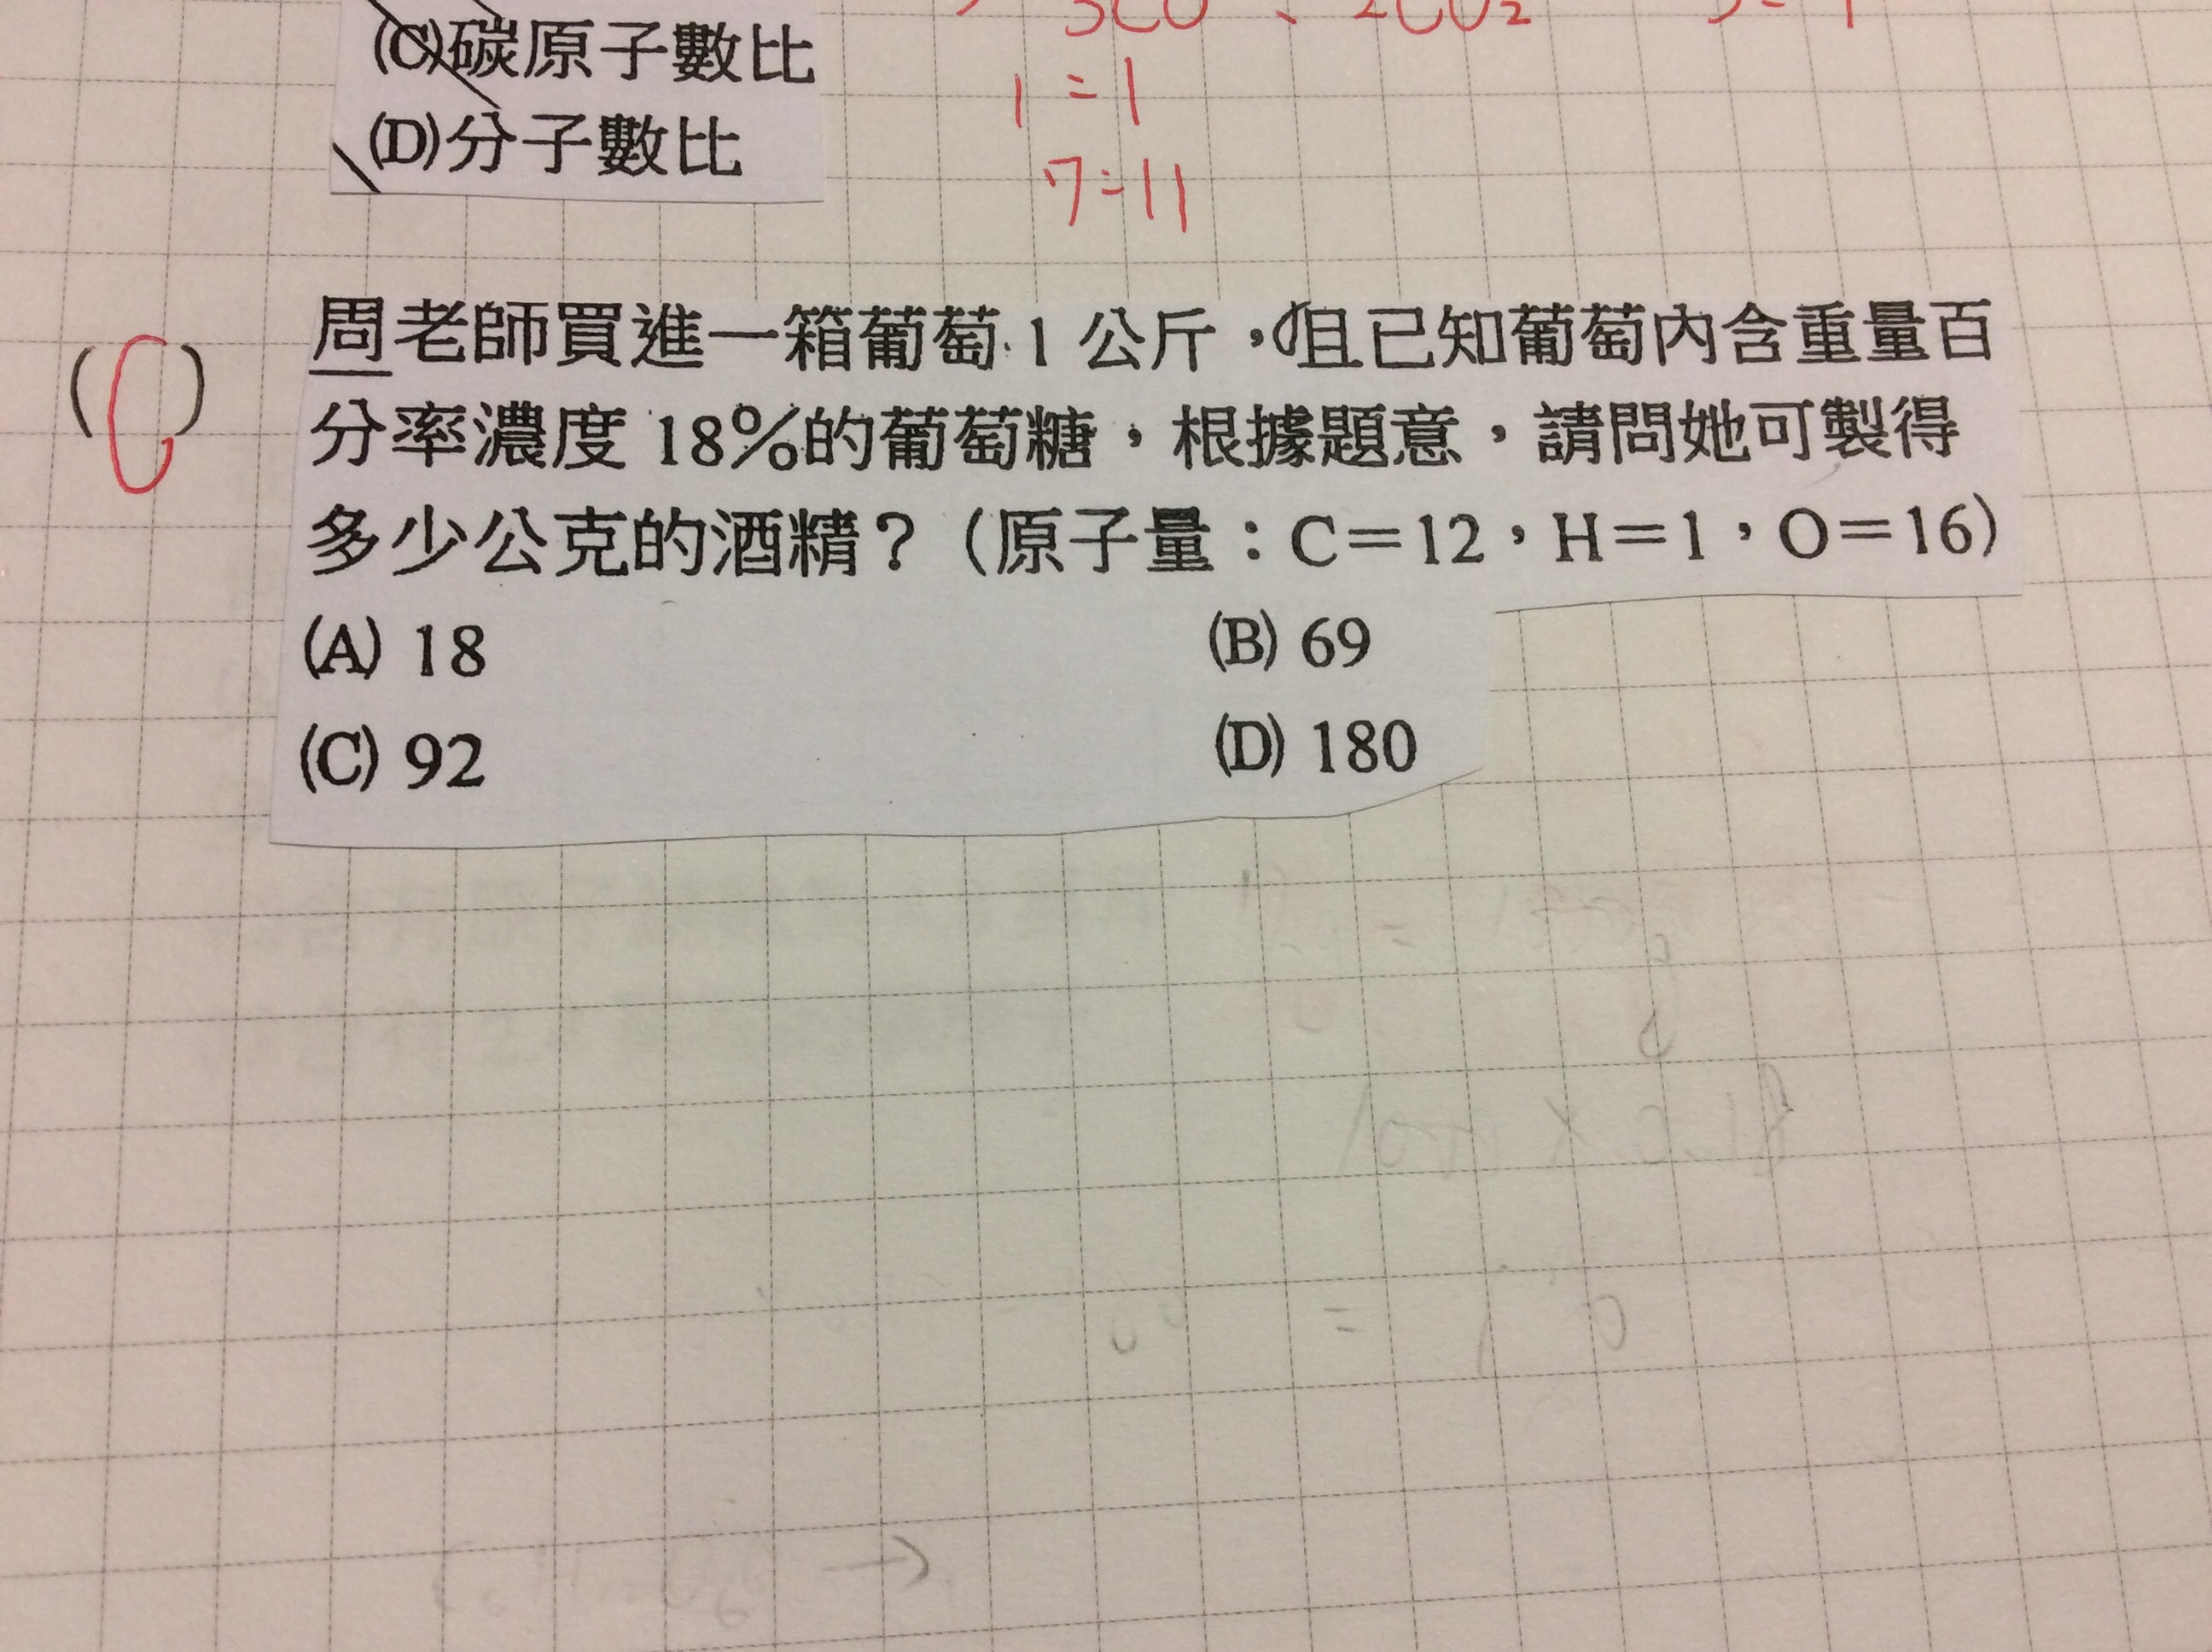 (C)碳原子數比
3CO、2CO₂
(D)分子數比
1=1
7=11
(C)
周老師買進一箱葡萄1公斤，且已知葡萄內含重量百
分率濃度18%的葡萄糖，根據題意，請問她可製得
多少公克的酒精？（原子量：C=12，H=1，O=16）
(A) 18
(B) 69
(C) 92
(D) 180